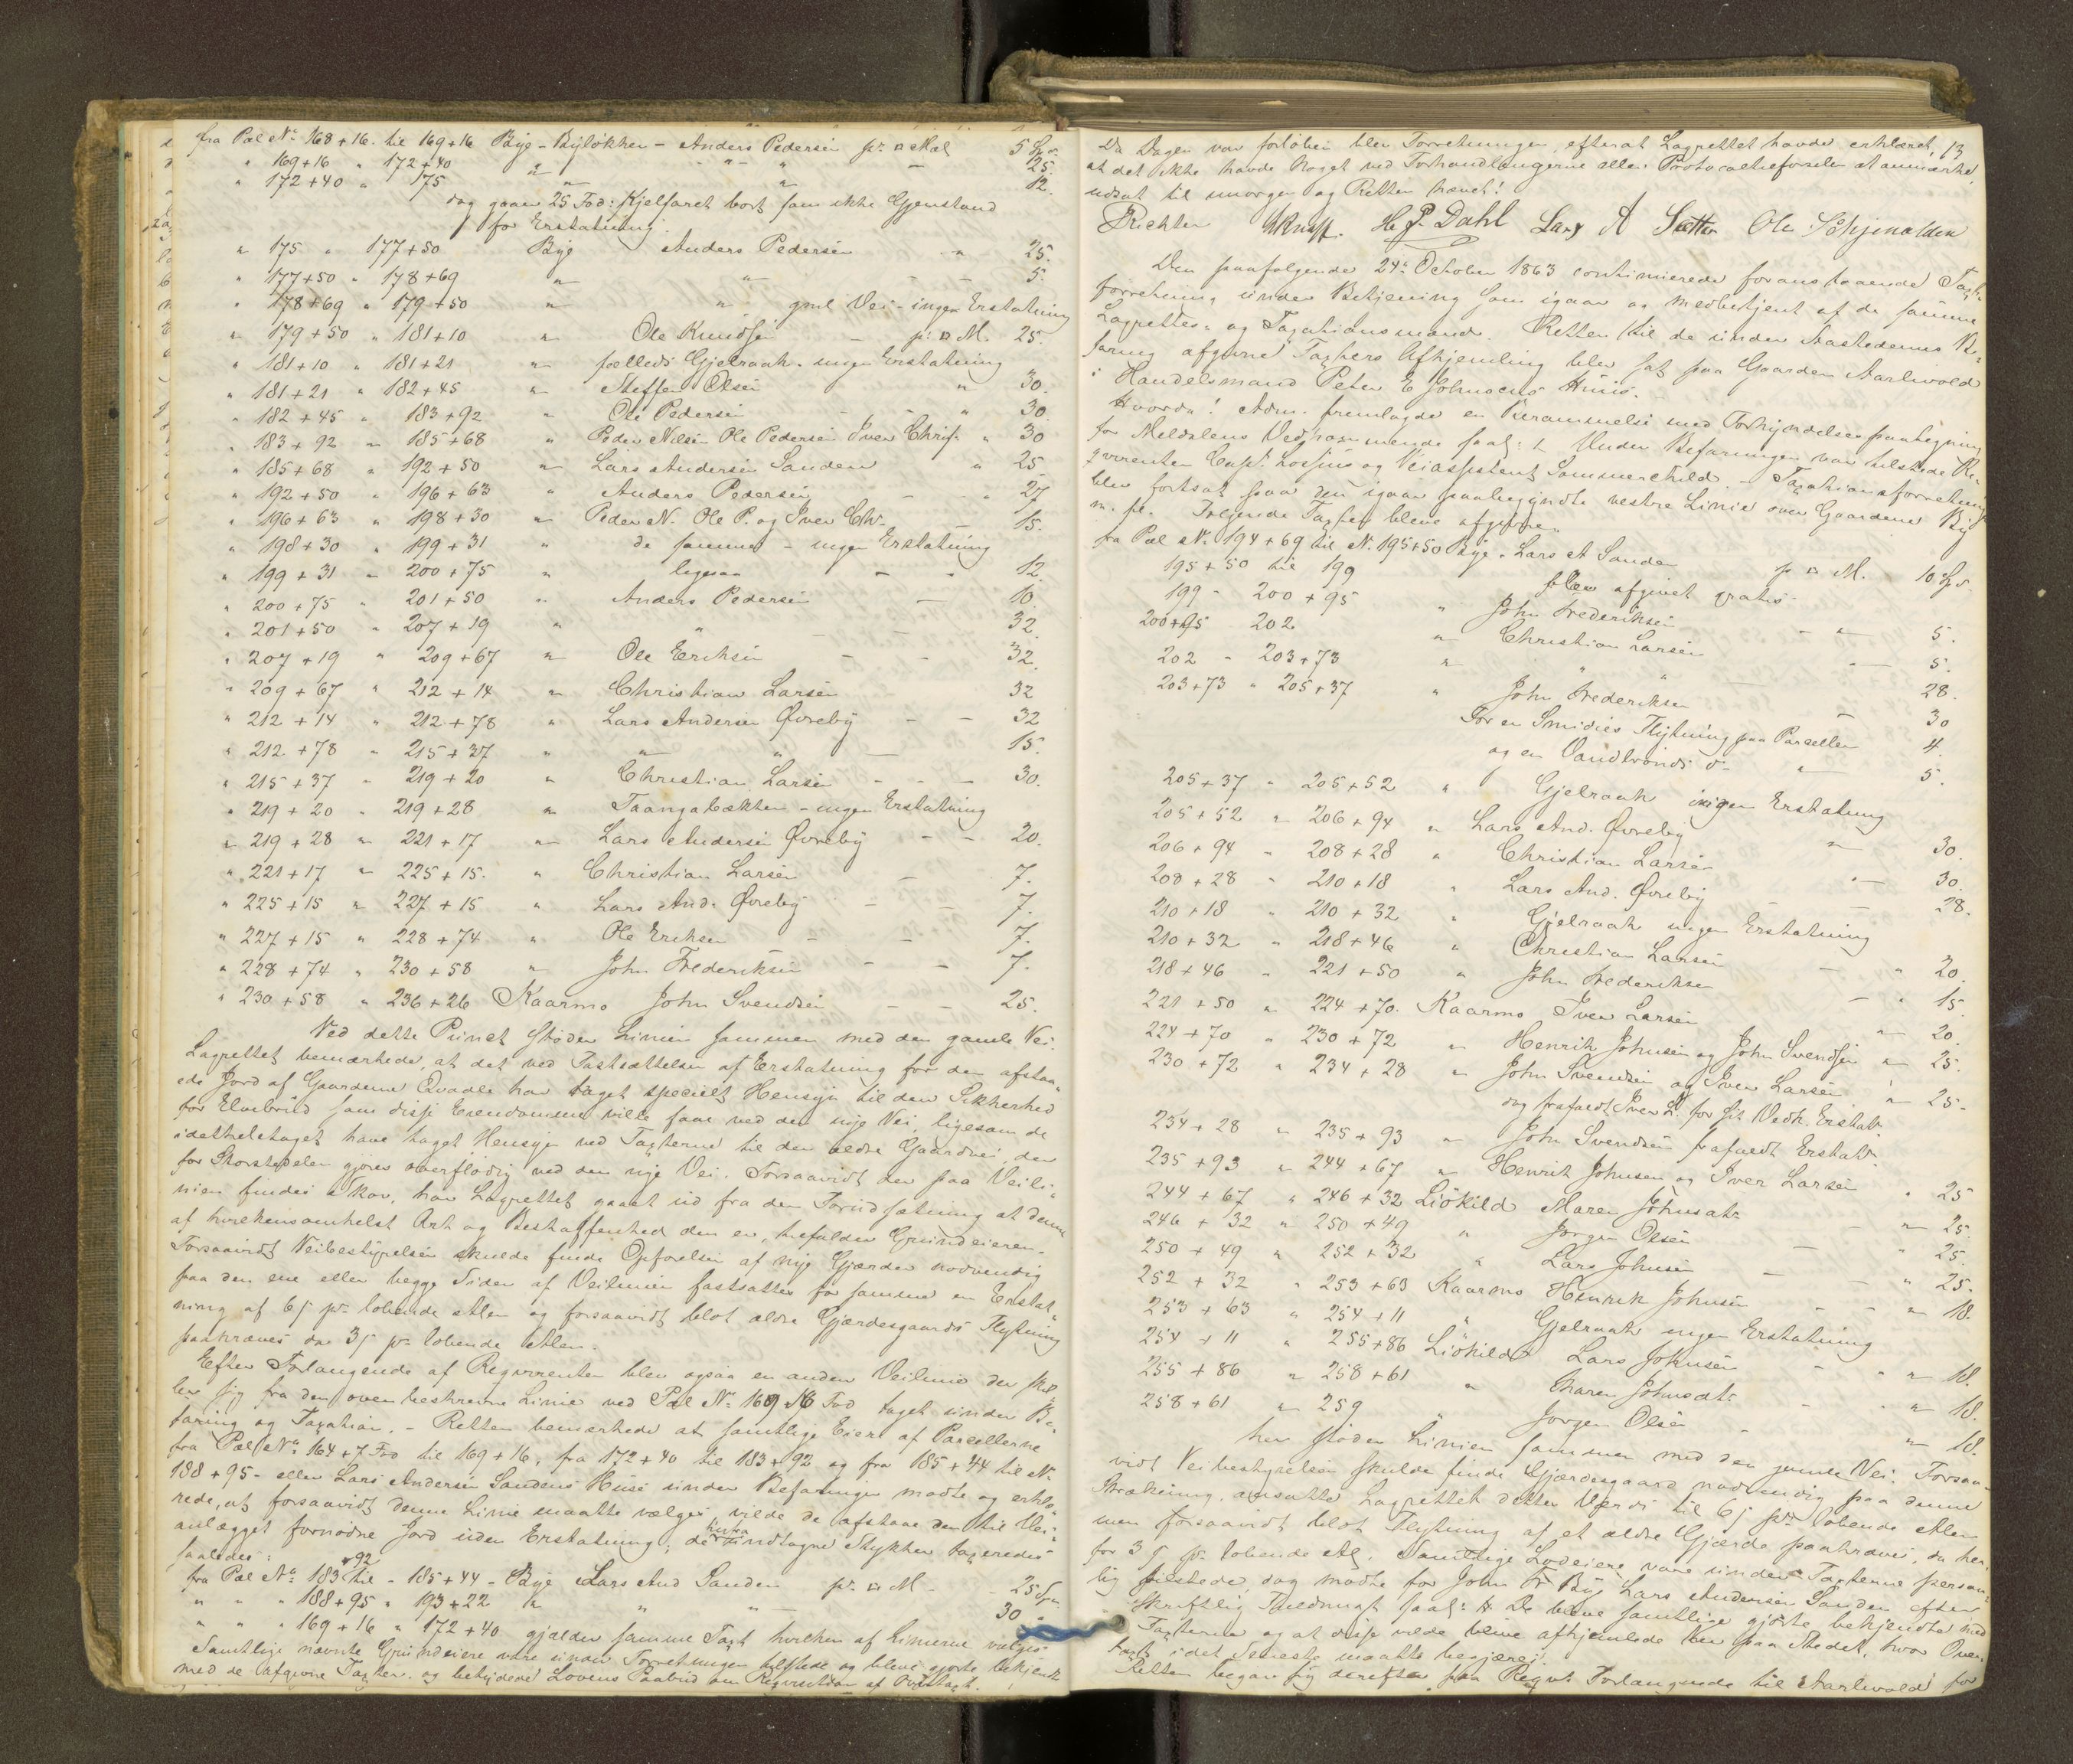 fra Pæl No 168+16. til 169+16 Bye - Byløkken - Anders Pedersen pr □ Mæl 5 Sp.
" 169+16 " 172+40 " " " - 25.
" 172+40 " 175 " " " 12.
dog gaar 25 Fod: Kjelfaret bort som ikke Gjenstand
for Erstatning.
" 175 " 177+50 Bye Anders Pedersen " 25.
" 177+50 " 178+69 " " - - 5.
" 178+69 " 179+50 " " gml Vei - ingen Erstatning
" 179+50 " 181+10 " Ole Knudsen - pr □ M. 25.
" 181+10 " 181+21 " fælleds Gjelraak - ingen Erstatning
" 181+21 " 182+45 " Steffen Olsen " 30.
" 182+45 " 183+92 " Ole Pedersen - - " 30
" 183+92 " 185+68 " Peder Nilsen Ole Pedersen Iver Chris. " 30
" 185+68 " 192+50 " Lars Andersen Sanden " 25
" 192+50 " 196+63 " Anders Pedersen - " 27
" 196+63 " 198+30 " Peder N. Ole P. og Iver Chr. 15.
" 198+30 " 199+31 " de samme - ingen Erstatning
" 199+31 " 200+75 " ligesaa - - 12.
" 200+75 " 201+50 " Anders Pedersen - 10.
" 201+50 " 207+19 " " - - 32.
" 207+19 " 209+67 " Ole Eriksen - - 32.
" 209+67 " 212+14 " Christian Larsen 32
" 212+14 " 212+78 " Lars Andersen Øvreby - - 32
" 212+78 " 215+37 " " " - 15.
" 215+37 " 219+20 " Christian Larsen - - - 30.
" 219+20 " 219+28 " Taangabækken - ingen Erstatning
" 219+28 " 221+17 " Lars Andersen Øvreby - - 20.
" 221+17 " 225+15. " Christian Larsen - 7.
" 225+15 " 227+15 " Lars And. Øvreby - - 7.
" 227+15 " 228+74 " Ole Eriksen - - 7.
" 228+74 " 230+58 " John Frederiksen - - 7.
" 230+58 " 236+26 Kaarmo John Svendsen - - 25.
Ved dette Punct støder Linien sammen med den gamle Vei.
Lagrettet bemærkede, at det ved Fastsættelsen af Erstatning for den afstaa-
ede Jord af Gaardene Qvaale har taget specielt Hensyn til den Sikkerhed
for Elvebrud som disse Eiendomme ville faae ved den nye Vei, ligesom de
idethele taget have taget Hensyn ved Taxterne til den ældre Gaardvei, der
for Størstedelen gjøres overflødig ved den nye Vei. Forsaavidt der paa Veili-
nien findes Skov, har Lagrettet gaaet ud fra den Forudsætning at denne
af hvilkensomhelst Art og Beskaffenhed den er, tilfalder Grundeieren.
Forsaavidt Veibestyrelsen skulde finde Opførelsen af nye Gjærder nødvendig
paa den ene eller begge Sider af Veilinien fastsattes for samme en Erstat-
ning af 6 s pr løbende Alen og forsaavidt blot ældre Gjærdesgaards Flytning
paakræves da 3 s pr løbende Alen.
Efter Forlangende af Reqvirenten blev ogsaa en anden Veilinie der skil-
ler sig fra den ovenbeskrevne Linie ved Pæl No 169+16 Fod taget under Be-
faring og Taxation. - Retten bemærkede at samtlige Eiere af Parcellerne
fra Pæl No 164+7 Fod til 169+16, fra 172+40 til 183+92 og fra 185+44 til No
188+95 - eller Lars Andersen Sandens Huse under Befaringen mødte og erklæ-
rede, at forsaavidt denne Linie maatte vælges vilde de afstaae den til Vei-
anlægget fornødne Jord uden Erstatning; de undtagne Stykker taxeredes
saaledes:
fra Pæl No 183+92 til - 185+44 - Bye Lars And Sanden pr □ M - - 25 Sp
" " " 188+95 " 193+22 " " " 30 "
" " " 169+16 " 172+40 gjælder samme Taxt hvilken af Linierne vælges.
Samtlige nævnte Grundeiere vare under Forretningen tilstede og bleve gjorte bekjendte
med de afgivne Taxter. og betydede Lovens Paabud om Reqvisition af Overtaxt.
13
Da Dagen var forløben blev Forretningen, efterat Lagrettet havde erklæret,
at det ikke havde Noget ved Forhandlingerne eller Protocolleførselen at anmærke,
udsat til imorgen og Retten hævet!
Richter Knuff. H. P. Dahl Lars A Sætter Ole Schjinalden
Den paafølgende 24de October 1863 continuerede foranstaaende Taxt-
forretning under Betjening som igaar og medbetjent af de samme
Lagrettes- og Taxationsmænd. Retten til de under Aastedernes Be-
faring afgivne Taxters Afhjemling blev sat paa Gaarden Aarlivold
i Handelsmand Peter E Johnsens Huus.
Hvorda! Adm. fremlagde en Berammelse med Forkyndelsespaategning
for Meldalens Vedkommende saal: L Under Befaringen var tilstede Re-
qvirenten Capt. Lossius og Veiassistent Sommerschild. - Taxationsforretningen
blev fortsat paa den igaar paabegyndte vestre Linie over Gaardene Bye
m. fl. Følgende Taxter bleve afgivne
fra Pæl No 194+69 til No 195+50 Bye - Lars A Sanden pr □ M. 10 Sp
195+50 til 199 blev afgivet gratis
199 - 200+95 " John Frederiksen - " 5.
200+95 202 " Christian Larsen - 5.
202 - 203+73 " " " 28.
203+73 " 205+37 " John Frederiksen - 30
For en Smidies Flytning paa Parcellen 4.
og en Vandbrønds do " 5.
205+37 " 205+52 " Gjelraak ingen Erstatning
205+52 " 206+94 " Lars And. Øvreby " 30.
206+94 " 208+28 " Christian Larsen " 30.
208+28 " 210+18 " Lars And. Øvreby - 28.
210+18 " 210+32 " Gjelraak ingen Erstatning
210+32 " 218+46 " Christian Larsen - " 20.
218+46 " 221+50 " John Frederiksen - " 15.
221+50 " 224+70. Kaarmo Iver Larsen " 20.
224+70 " 230+72 " Henrik Johnsen og John Svendsen " 25.
230+72 " 234+28 " John Svendsen og Iver Larsen " 25.
dog frafaldt Iver L. for sit Vedk. Erstatn.
234+28 " 235+93 " John Svendsen frafaldt Erstatn.
235+93 " 244+67 " Henrik Johnsen og Iver Larsen " 25
244+67 " 246+32 Liökild Maren Johnsdtr - " 25.
246+32 " 250+49 " Jørgen Olsen - " 25.
250+49 " 252+32 " Lars Johnsen - - " 25.
252+32 " 253+63 Kaarmo Henrik Johnsen - - " 18.
253+63 " 254+11 " Gjelraak ingen Erstatning
254+11 " 255+86 Liökild Lars Johnsen - " " 18.
255+86 " 258+61 " Maren Johnsdtr - " " 18.
258+61 " 259 " Jørgen Olsen - " 18.
her støder Linien sammen med den gamle Vei. Forsaa-
vidt Veibestyrelsen skulde finde Gjærdesgaard nødvendig paa denne
Strækning, ansatte Lagrettet dettes Værdi til 6 s pr løbende Alen
men forsaavidt blot Flytning af et ældre Gjærde paakræves, da her-
for 3 s pr løbende Al. Samtlige Lodeiere vare under Taxterne person-
lig tilstede, dog mødte for John Fr Bye Lars Andersen Sanden efter
skriftlig Fuldmagt saal: A De bleve samtlige gjorte bekjendte med
Taxterne og at disse vilde blive afhjemlede her paa Stedet, hvor Over-
taxt i det Seneste maatte begjæres.
Retten begav sig derefter paa Reqvt Forlangende til Aarlivold for